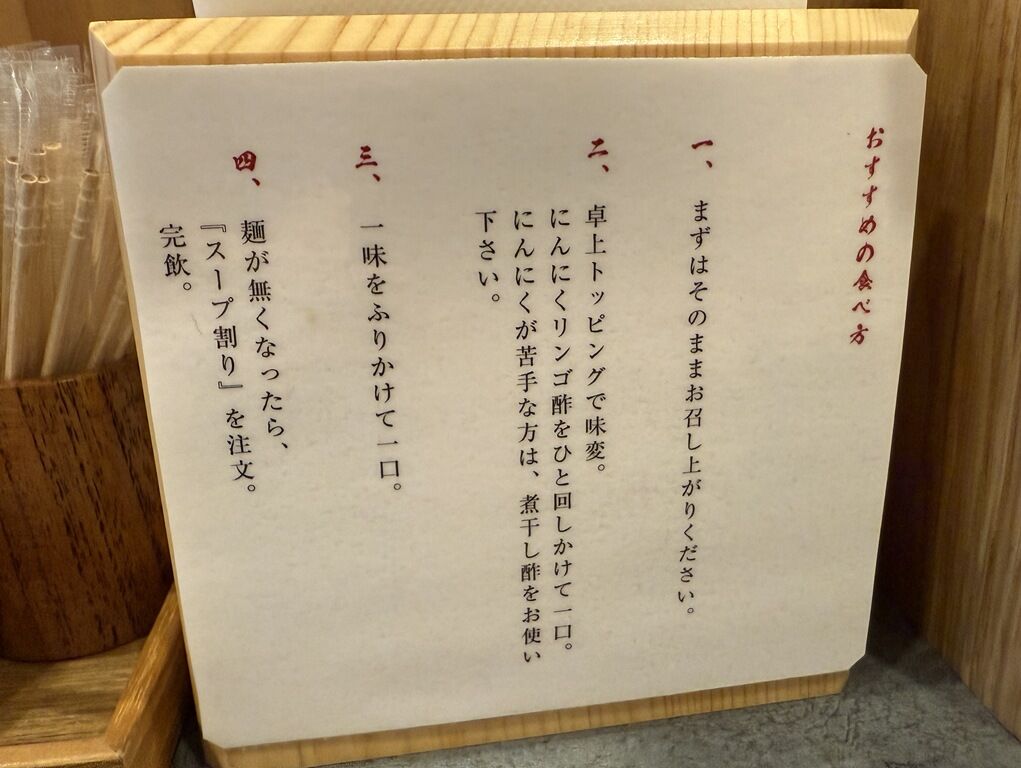 おすすめの食べ方
一、まずはそのままお召し上がりください。
二、卓上トッピングで味変。
にんにくリンゴ酢をひと回しかけて一口。
にんにくが苦手な方は、煮干し酢をお使い
下さい。
三、一味をふりかけて一口。
四、麺が無くなったら、
『スープ割り』を注文。
完飲。